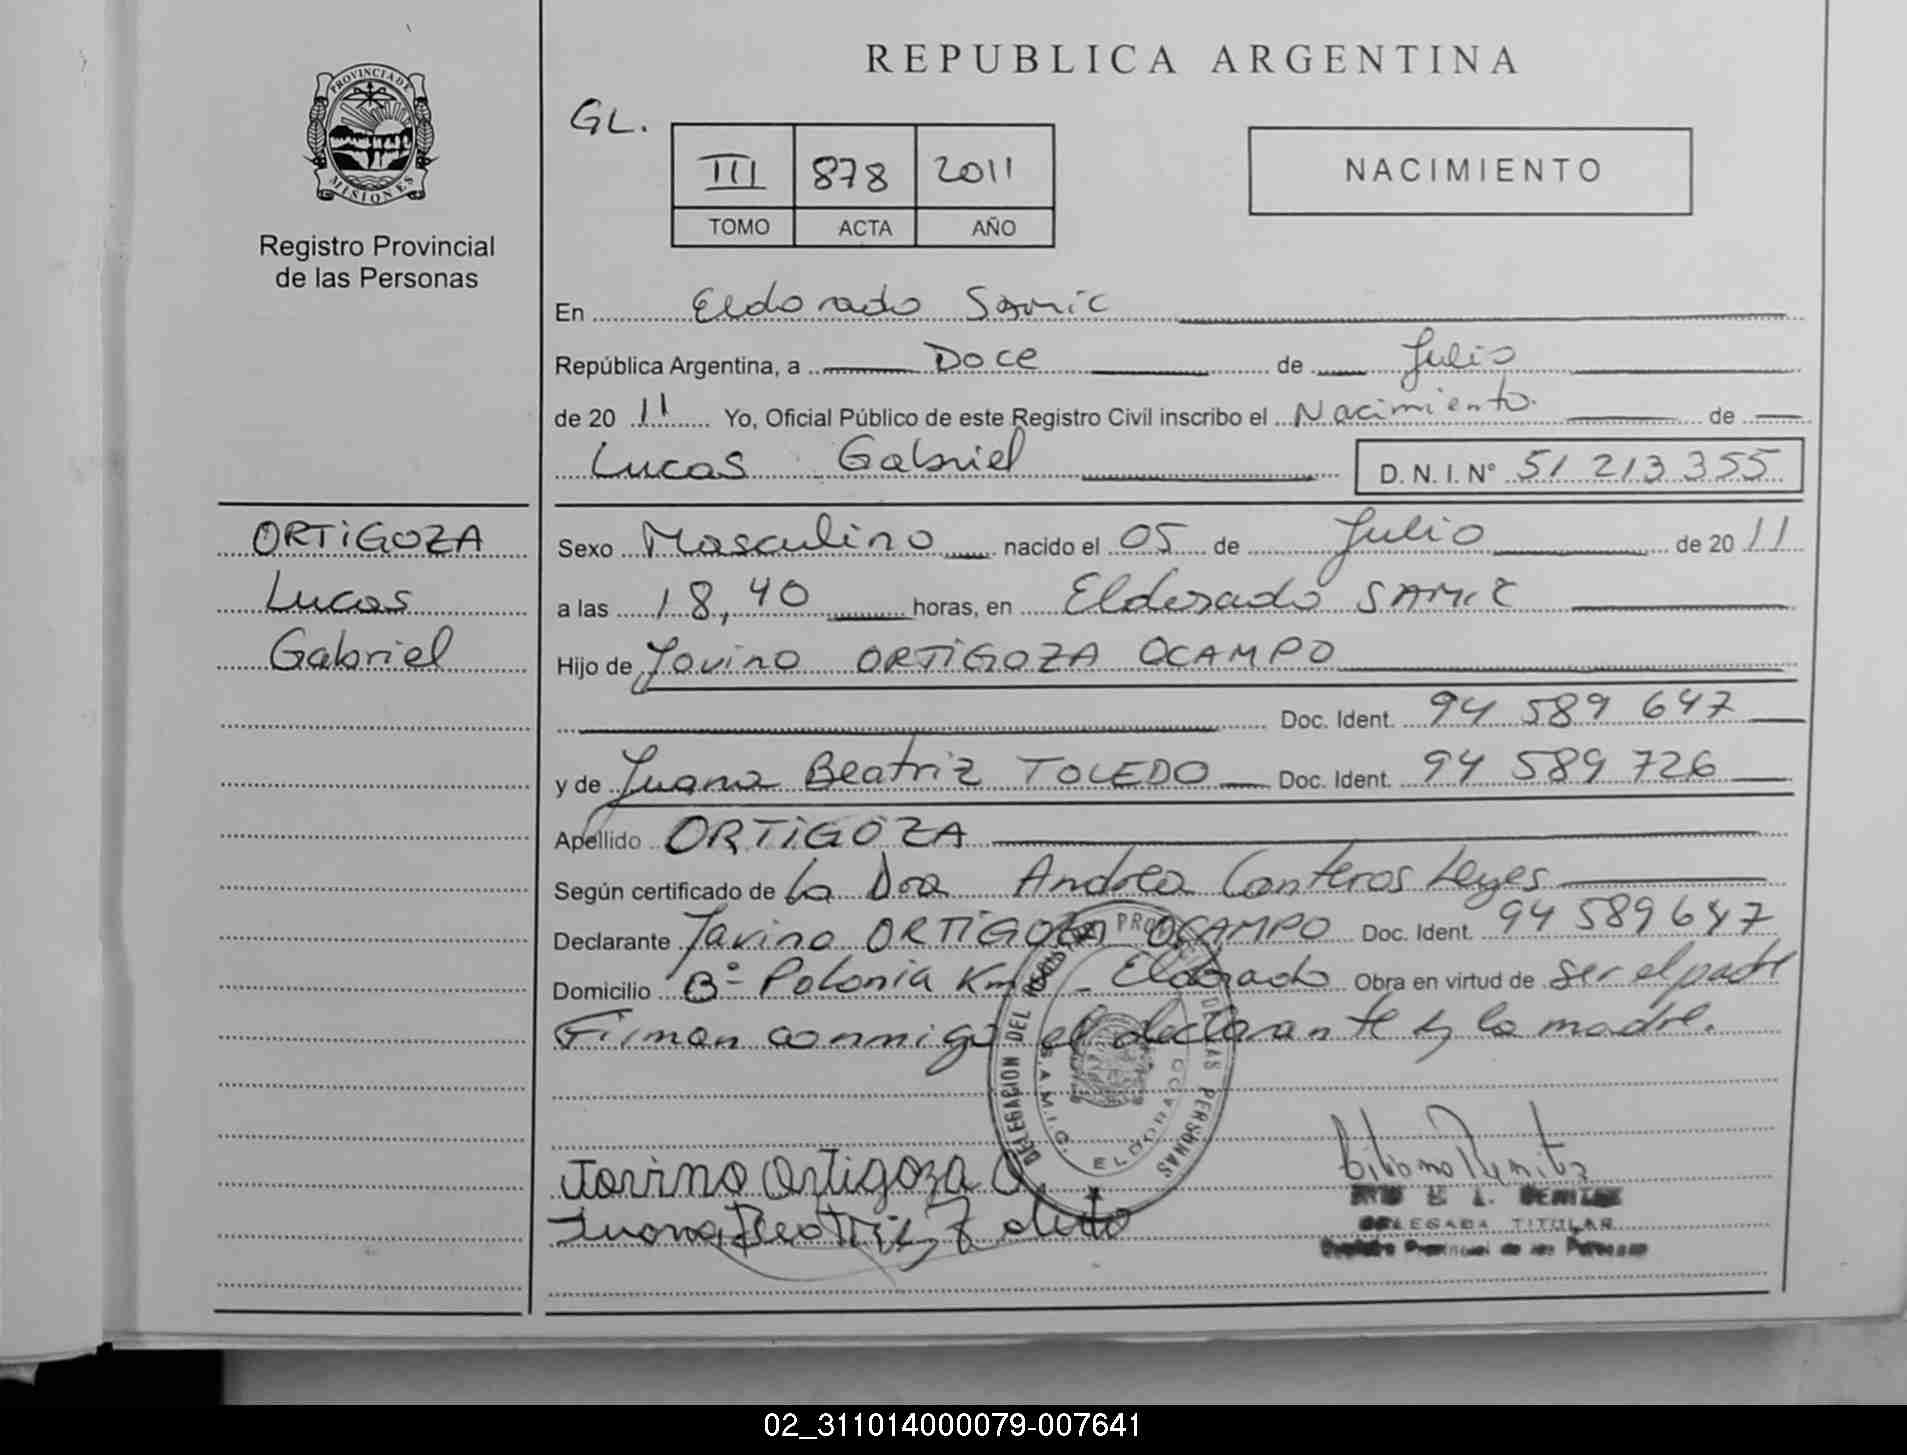 PROVINCIA DE
MISIONES
Registro Provincial
de las Personas
ORTiGOZA
Lucas
Gabriel
REPUBLICA ARGENTINA
GL.
III 878 2011
TOMO ACTA AÑO
NACIMIENTO
En Eldorado Samic
República Argentina, a Doce de Julio
de 20 11 Yo, Oficial Público de este Registro Civil inscribo el Nacimiento de
Lucas Gabriel D. N. I. N° 51 213 355
Sexo Masculino nacido el 05 de Julio de 20 11
a las 18,40 horas, en Eldorado SAMIC
Hijo de Jovino ORTiGOZA OCAMPO
Doc. Ident. 94 589 647
y de Juana Beatriz TOLEDO Doc. Ident. 94 589 726
Apellido ORTiGOZA
Según certificado de La Dra Andrea Canteros Leyes
Declarante Jovino ORTiGOZA OCAMPO Doc. Ident. 94 589 647
Domicilio B° Polonia Km Eldorado Obra en virtud de ser el padre
Firman conmigo el declarante y la madre.
DELEGACION DEL REGISTRO PROVINCIAL DE LAS PERSONAS
S.A.M.I.C. ELDORADO
Jovino Ortigoza O.
Juana Beatriz Toledo
DELEGADA TITULAR
Registro Provincial de las Personas
02_311014000079-007641